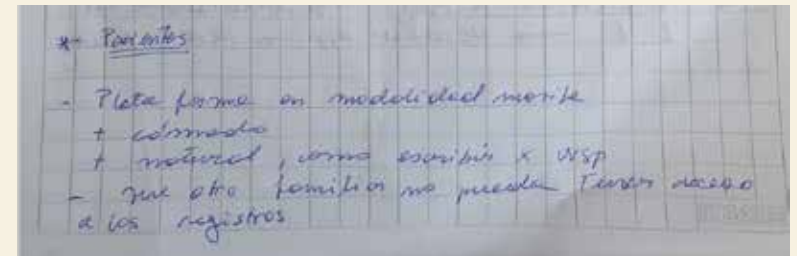 *- Pacientes
- Plataforma en modalidad movile
+ cómodo
+ natural, como escribir x wsp
- que otro familiar no pueda tener acceso
a los registros